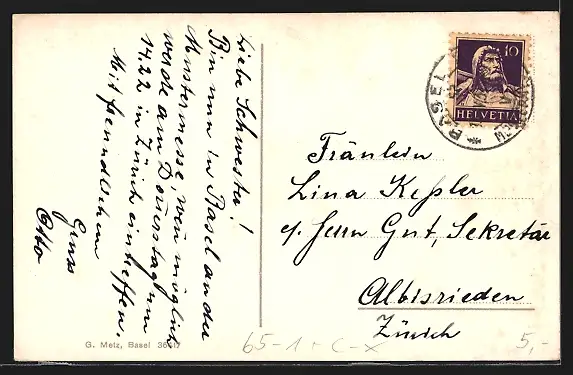 Liebe Schwester!
Bin nun in Basel an der
Mustermesse, wenn möglich
werde am Donnerstag um
14.22 in Zürich eintreffen.
Mit freundlichem
Gruss
Otto
10
HELVETIA
BASEL
Fräulein
Lina Keßler
c/. Herrn Gut, Sekretär
Albisrieden
Zürich
G. Metz, Basel
65-1+C-X
5,-